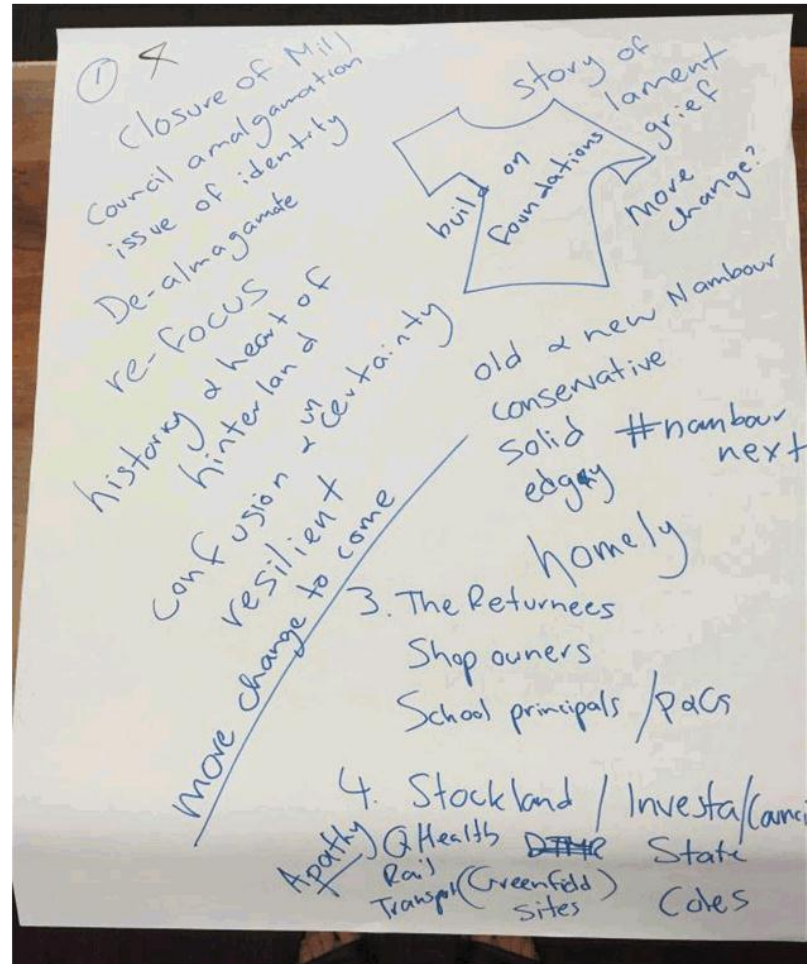 1 4
Closure of Mill
Council amalgamation
issue of identity
De-almagamate
re-focus
history & heart of
hinterland
confusion & un certainty
resilient
more change to come
story of
lament
grief
more
change?
build on
foundations
old & new Nambour
conservative
solid #nambour
next
edgy
homely
3. The Returnees
Shop owners
School principals / P&Cs
4. Stockland / Investa /
Apathy) QHealth DTMR State
Rail
Transport (Greenfield)
Sites Coles